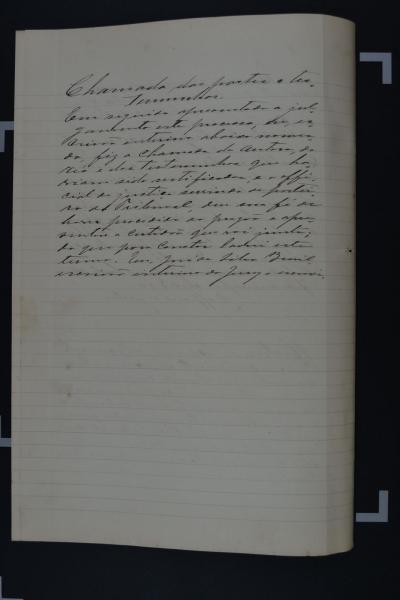 Chamada das partes e tes-
temunhas.
Em seguida apresentado a jul-
gamento este processo, eu, es-
crivão interino abaixo nomea-
do, fiz a chamada do autor, do
reo e das testemunhas que ha-
viam sido notificadas, e o offi-
cial de justiça servindo de portei-
ro do Tribunal, deu sua fé de
haver procedido ao pregão e apre-
sentou a certidão que vai junta;
do que para constar lavrei este
termo. Eu,
escrivão interino do Jury o escrevi.